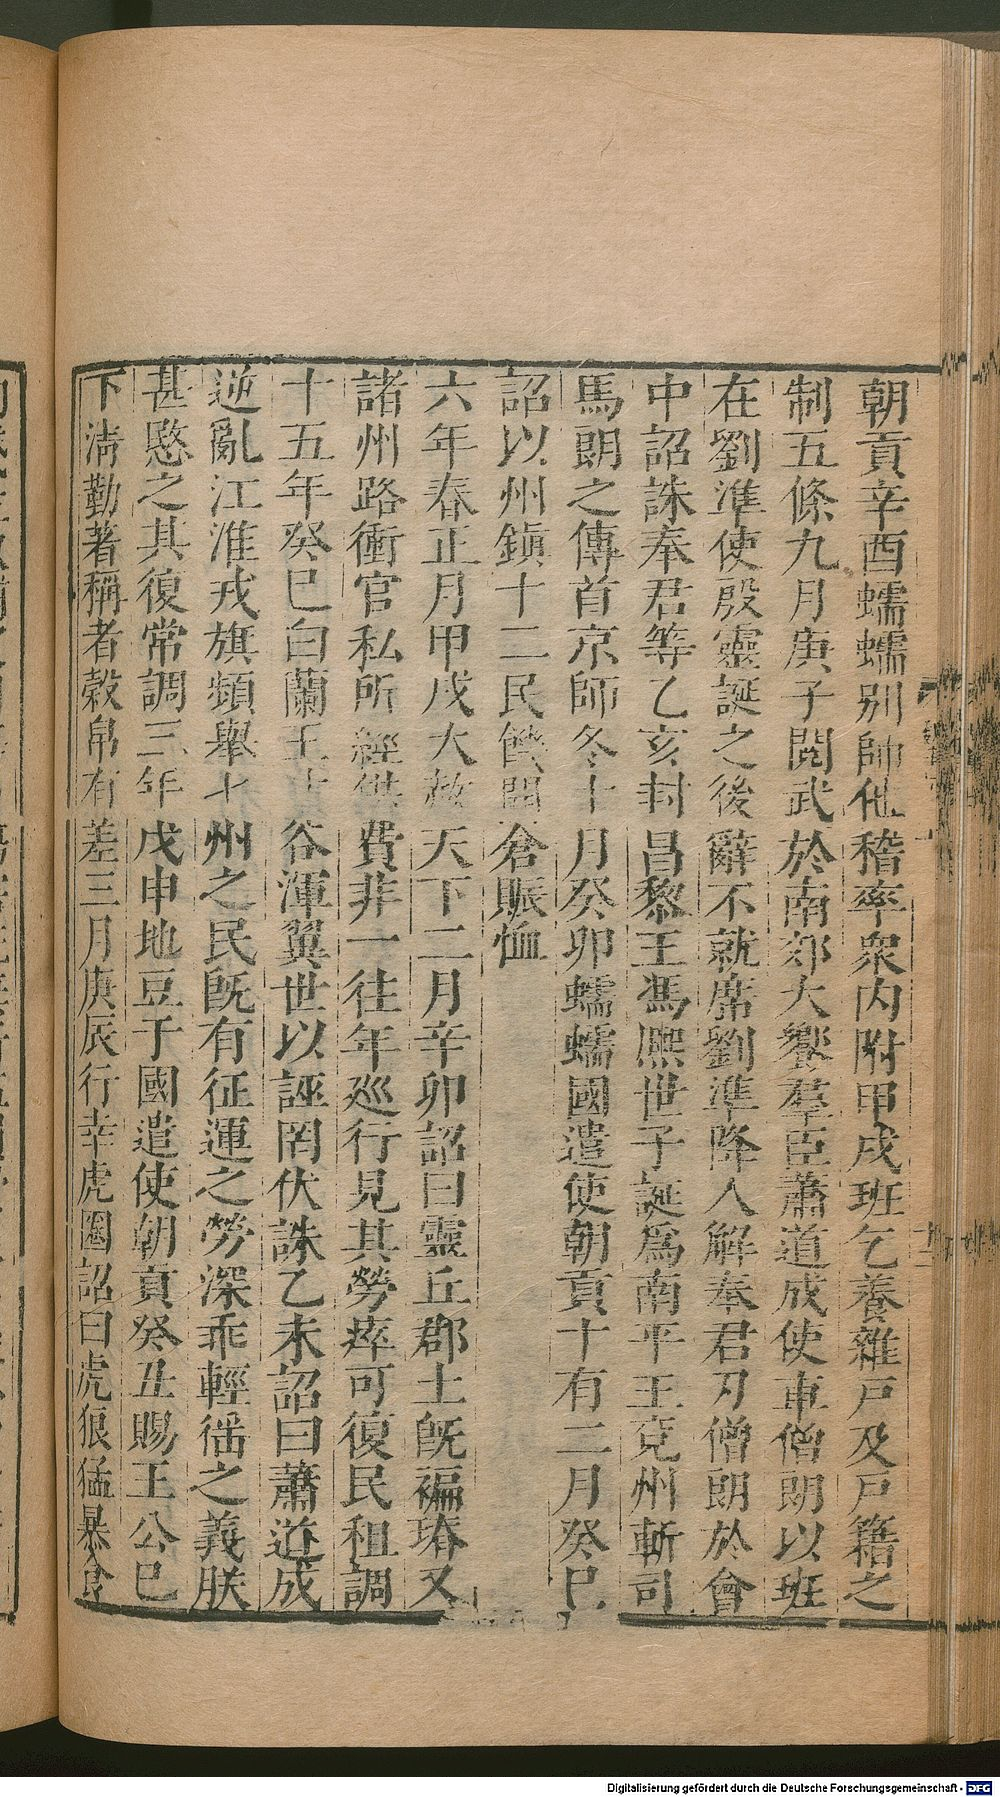 朝貢辛酉蠕蠕別帥他稽率衆內附甲戌班乞養雜戸及戸籍之
制五條九月庚子閱武於南郊大饗羣臣蕭道成使車僧朗以班
在劉準使殷靈誕之後辭不就席劉準降人解奉君刃僧朗於會
中詔誅奉君等乙亥封昌黎王馮熈世子誕爲南平王兗州斬司
馬朗之傳首京師冬十月癸卯蠕蠕國遣使朝貢十有二月癸巳
詔以州鎮十二民饑開倉賑恤
六年春正月甲戌大赦天下二月辛卯詔曰靈丘郡土旣褊塉又
諸州路衝官私所經供費非一往年巡行見其勞瘁可復民租調
十五年癸巳白蘭王吐谷渾翼世以誣罔伏誅乙未詔曰蕭道成
逆亂江淮戎旗頻舉七州之民旣有征運之勞深乖輕徭之義朕
甚愍之其復常調三年戊申地豆于國遣使朝貢癸丑賜王公已
下清勤著稱者穀帛有差三月庚辰行幸虎圈詔曰虎狼猛暴食
Digitalisierung gefördert durch die Deutsche Forschungsgemeinschaft - DFG